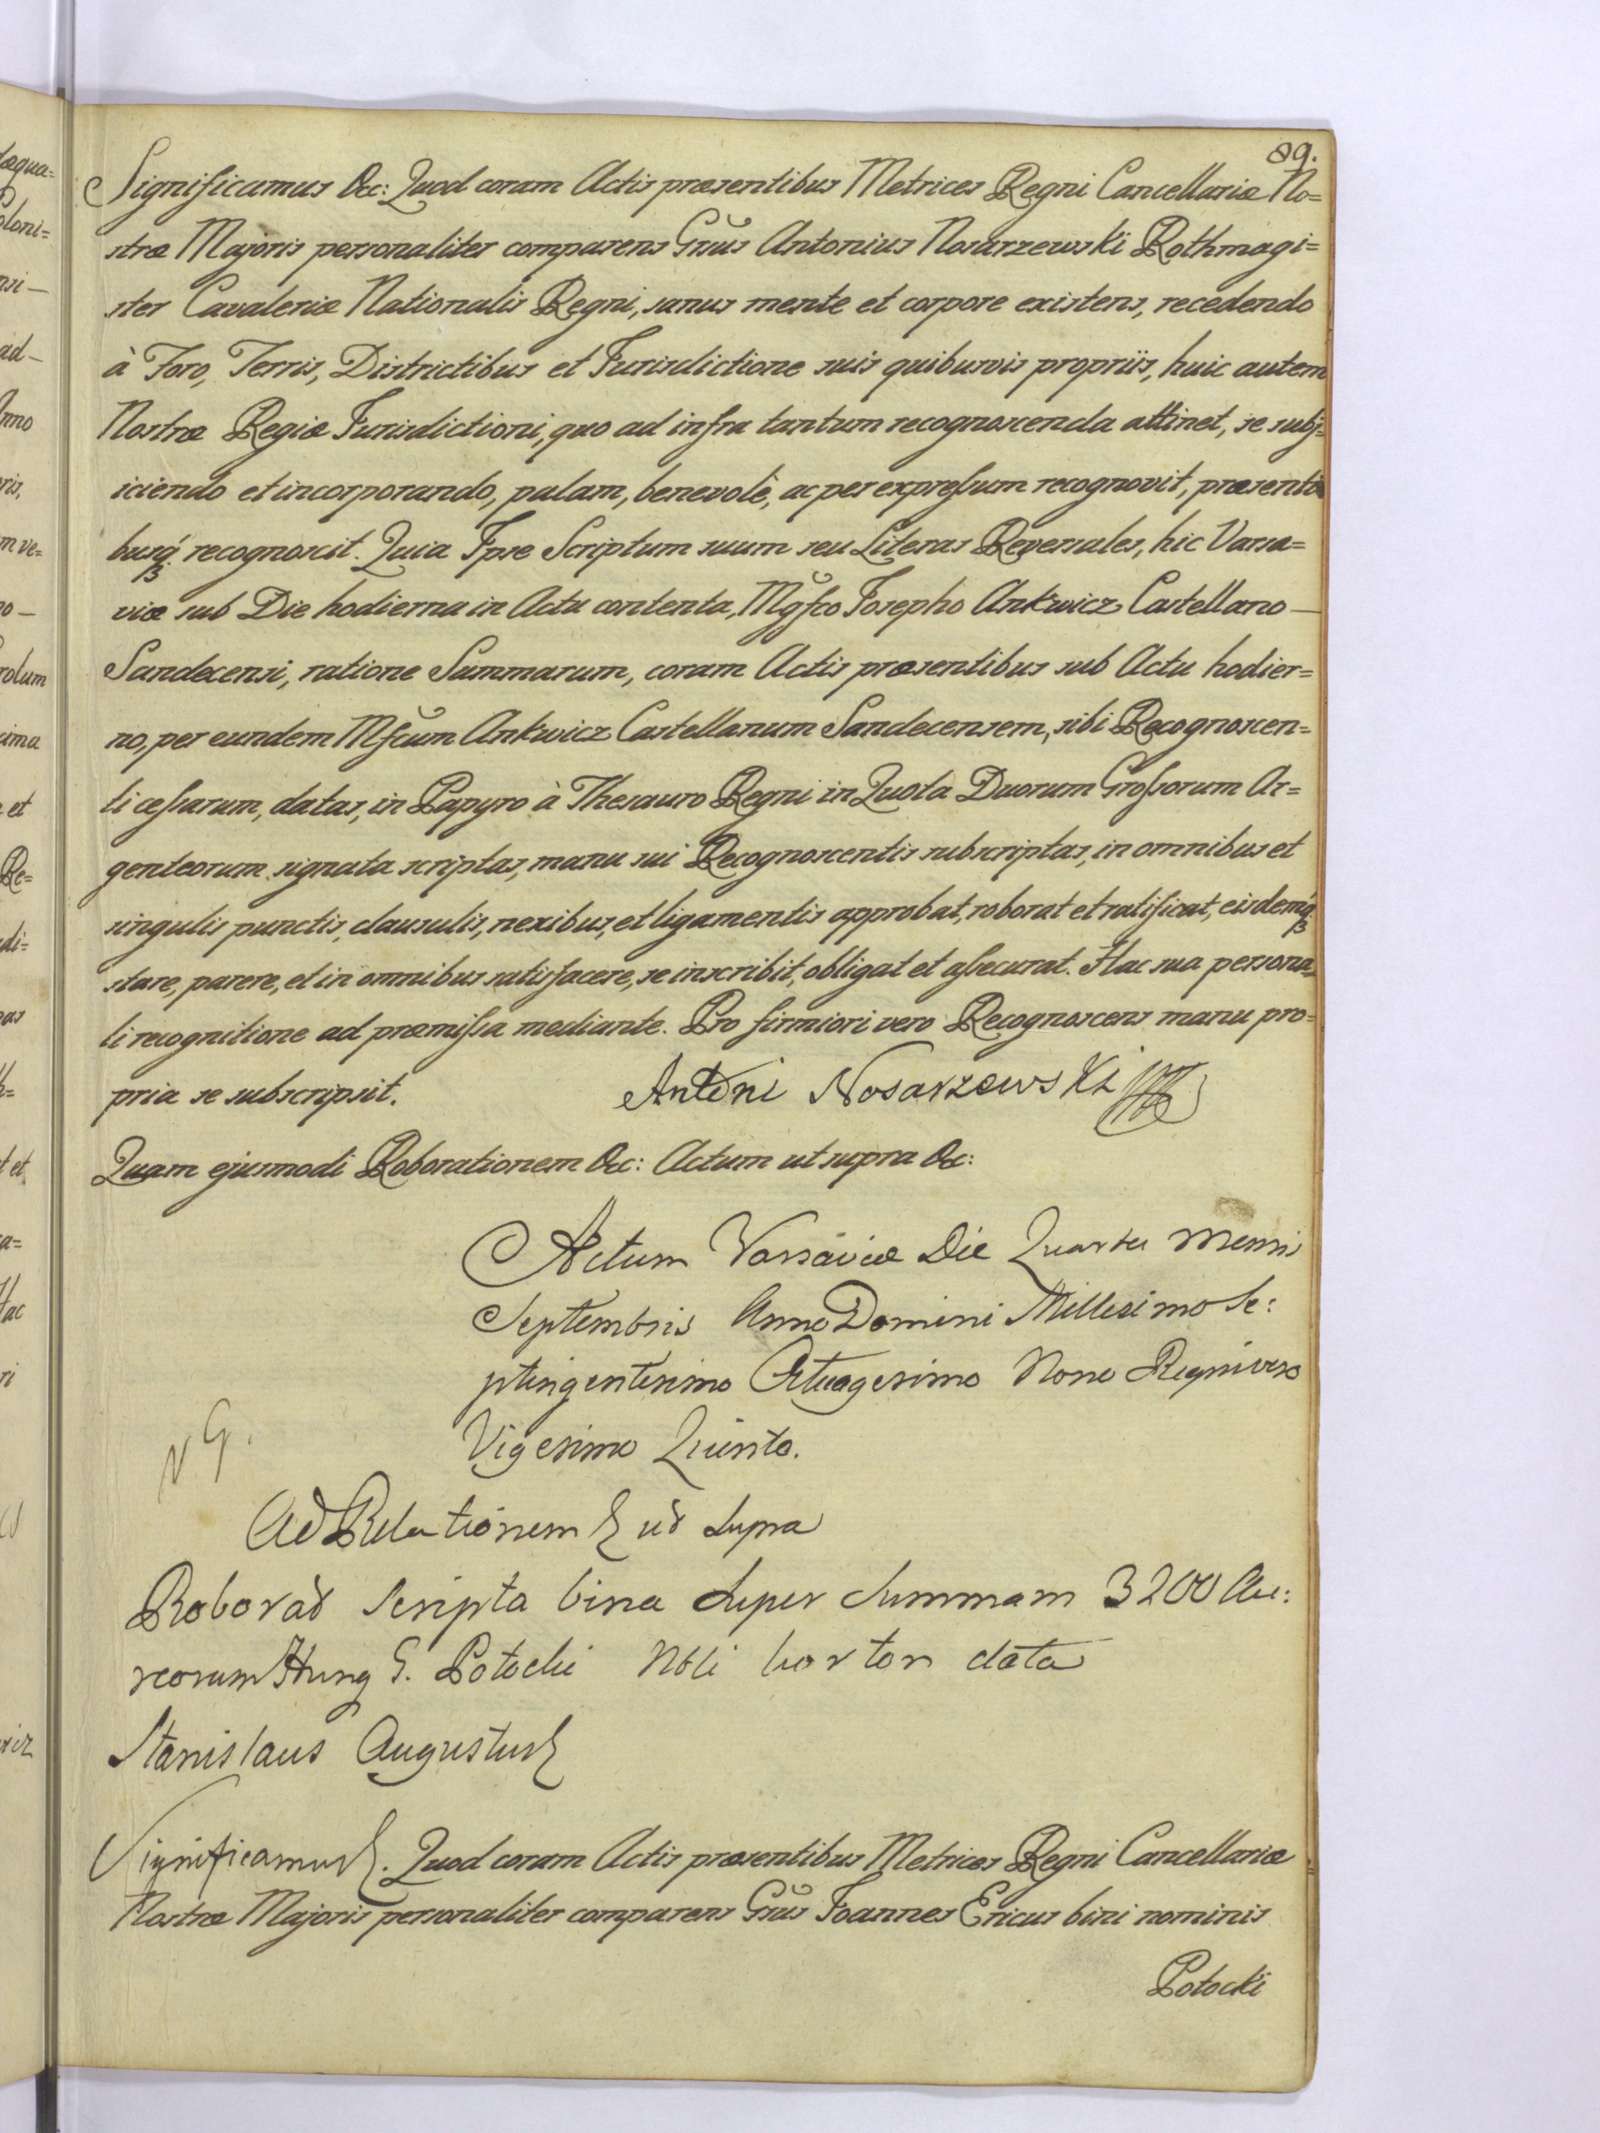 89.
Significamus &c: Quod coram Actis præsentibus Metrices Regni Cancellariæ No=
stræ Majoris personaliter comparens Gñsus Antonius Nosarzewski Rothmagi=
ster Cavaleriæ Nationalis Regni, sanus mente et corpore existens, recedendo
à Foro, Terris, Districtibus et Jurisdictione suis quibusvis propriis, huic autem
Nostræ Regiæ Jurisdictioni, quo ad infra tantum recognoscenda attinet, se subj=
iciendo et incorporando, palam, benevolè, ac per expressum recognovit, præsenti
busq́ recognoscit. Quia Ipse Scriptum suum seu Literas Reversales, hic Varsa=
viæ sub Die hodierna in Actu contenta, Mgfco Josepho Ankwicz Castellano —
Sandecensi, ratione Summarum, coram Actis præsentibus sub Actu hodier=
no, per eundem Mfcum Ankwicz Castellanum Sandecensem, sibi Recognoscen=
ti cessarum, datas, in Papyro à Thesauro Regni in Quota Duorum Grossorum Ar=
genteorum signata scriptas, manu sui Recognoscentis subscriptas, in omnibus et
singulis punctis, clausulis, nexibus, et ligamentis approbat, roborat et ratificat, eisdemq́
stare, parere, et in omnibus satisfacere, se inscribit, obligat et assecurat. Hac sua persona=
li recognitione ad præmissa mediante. Pro firmiori vero Recognoscens manu pro=
pria se subscripsit. Antoni Nosarzewski
Quam ejusmodi Roborationem &c: Actum ut supra &c:
Actum Varsaviæ Die Quarta Mensis
Septembris Anno Domini Millesimo Se:
ptingentesimo Octuagesimo Nono Regni vero
Vigesimo Quinto.
NG.
Ad Relationem & ut supra
Roborat Scripta bina super summam 3200 Au:
reorum Hung G. Potocki Nbli horton data
Stanislaus Augustus &
Significamus &. Quod coram Actis præsentibus Metrices Regni Cancellariæ
Nostræ Majoris personaliter comparens Gñsus Joannes Ericus bini nominis
Potocki